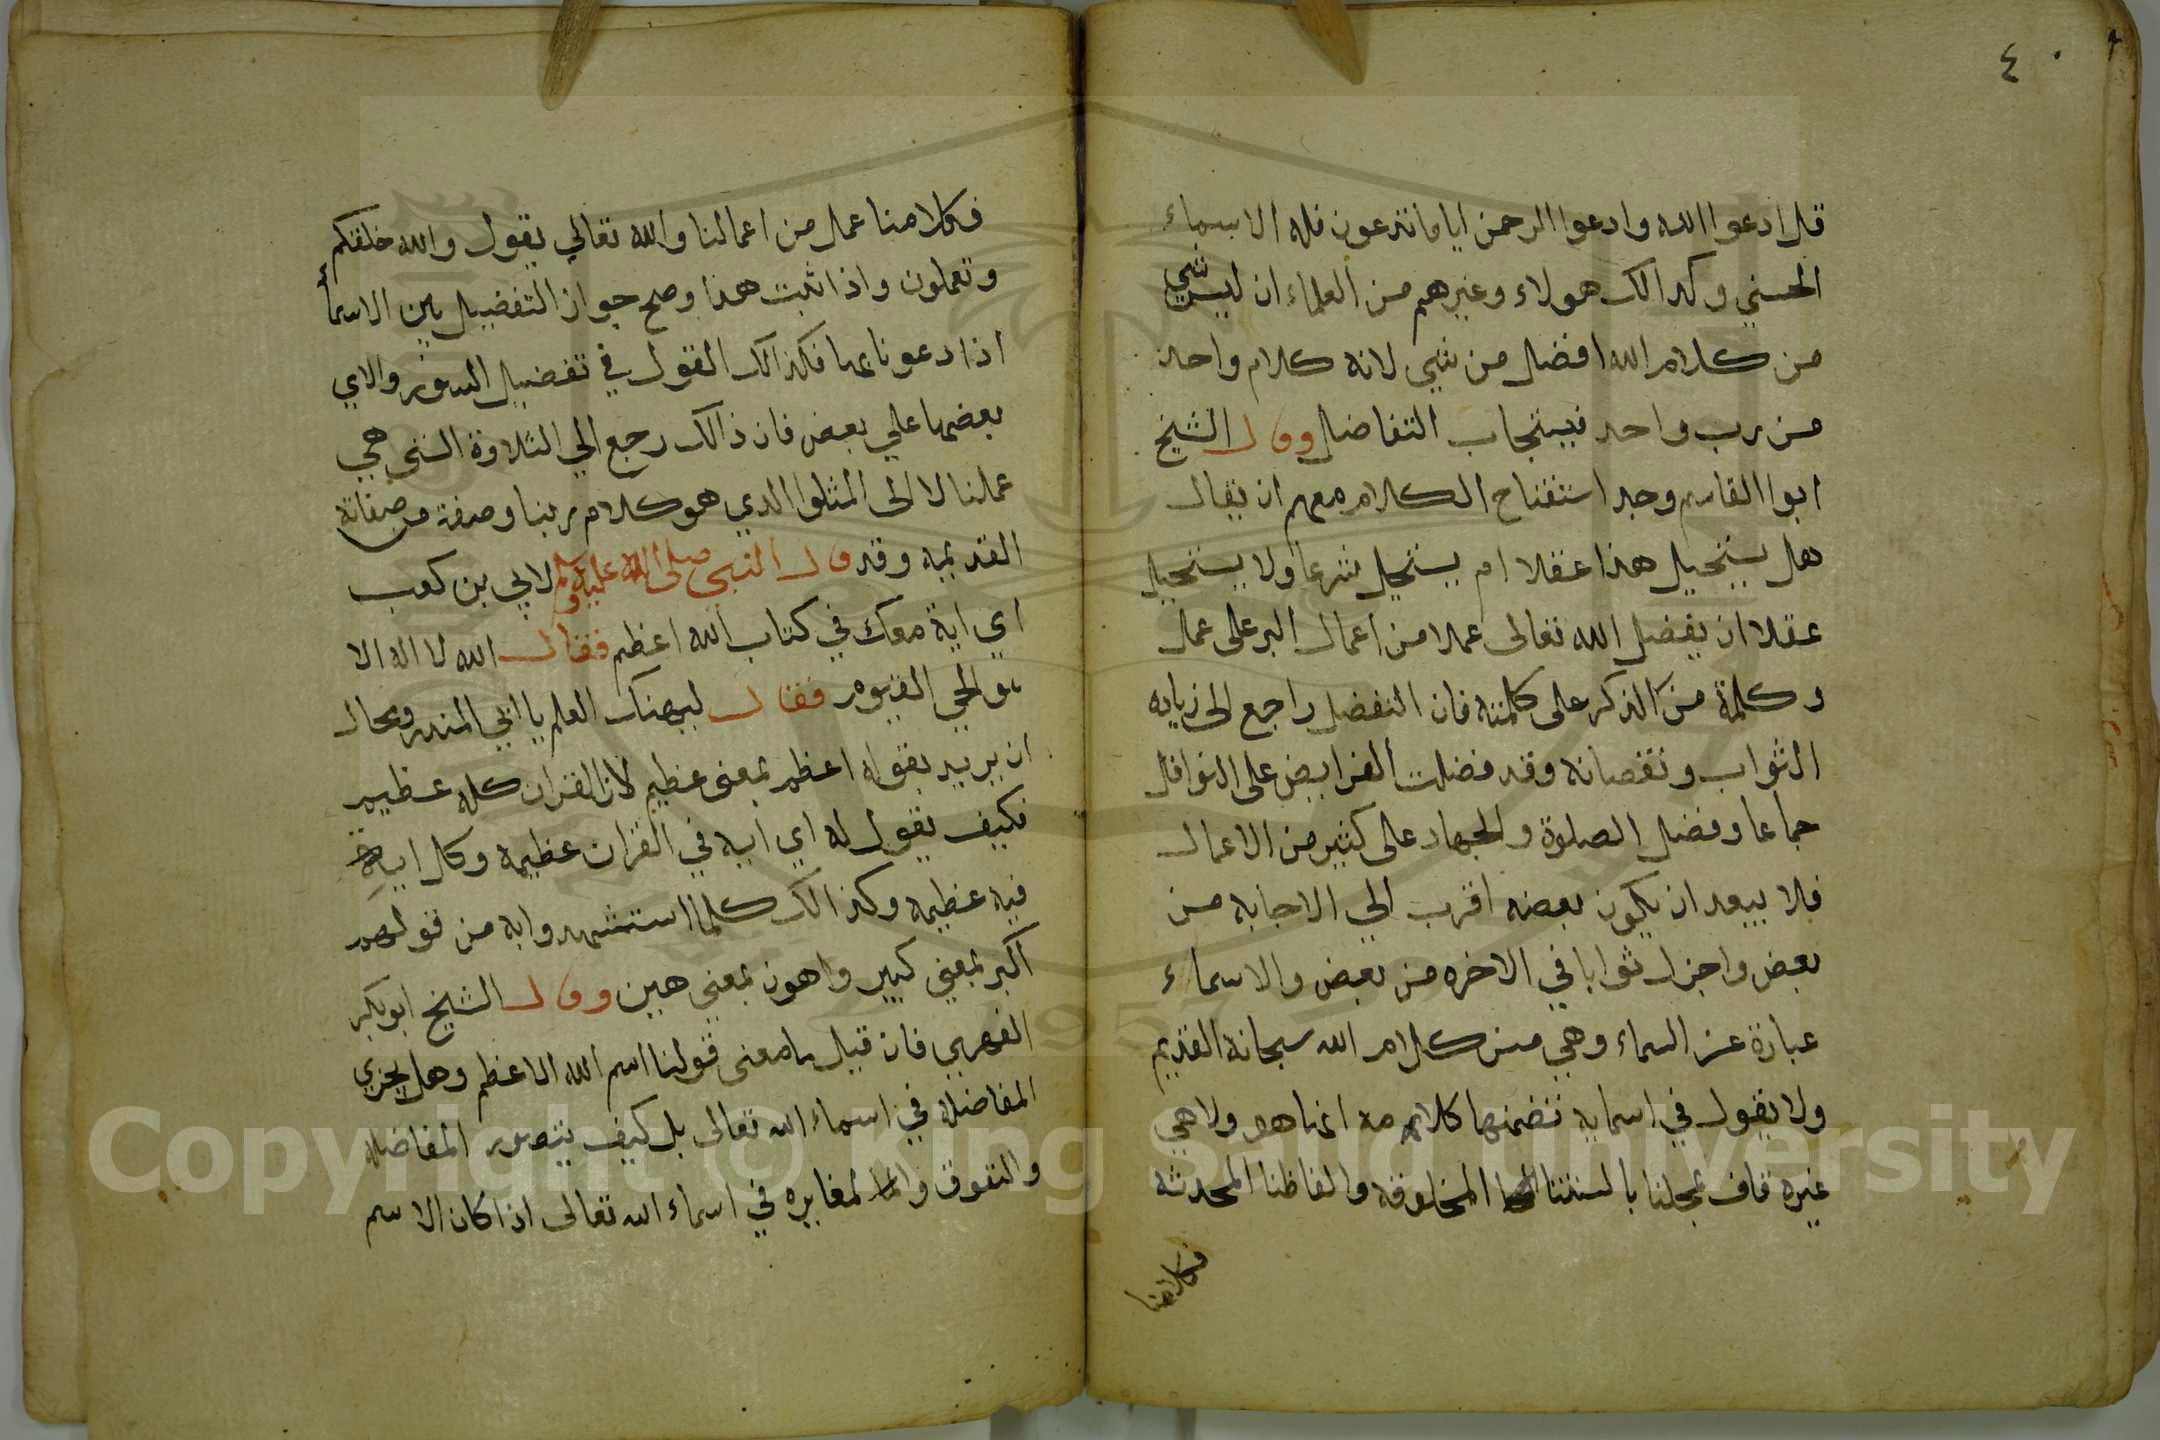 ٤٠
قل ادعوا الله وادعوا الرحمن ايا ما تدعون فله الاسماء
الحسني وكدالك هولاء وغيرهم من العلماء ان ليس شي
من كلام الله افضل من شي لانه كلام واحد
من رب واحد التفاضل وقال الشيخ
ابوا القاسم وجد استفتاح الكلام معهم ان يقال
هل يستحيل هذا عقلا ام يستحيل شرعا ولا يستحيل
عقلا ان يفضل الله تعالى عملا من اعمال البر على عمل
وكلمة من الذكر على كلمته فان التفضل راجع الى زياده
الثواب ونقصانه وقد فضلت الفرايض على النوافل
جماعا وفضل الصلوة والجهاد على كثير من الاعمال
فلا يبعد ان يكون بعضه اقرب الي الاجابه من
بعض واجزل ثوابا في الاخره من بعض والاسماء
عبارة عن السماء وهي من كلام الله سبحانه القديم
ولا يقول في اسمايه تضمنها كلامه انها هو ولا هي
غيره فاف بالسنتنا المخلوقه والفاظنا المحدثه
فكلامنا
فكلامنا عمل من اعمالنا والله تعالي يقول والله خلقكم
وتعملون واذا ثبت هذا وصح جواز التفضيل بين الاسمأ
اذا دعونا بها فكذالك القول في تفضيل السور والاي
بعضها علي بعض فان ذالك رجع الي التلاوة التي هي
عملنا لا الى المتلوا الدي هو كلام ربنا وصفة من صفاته
القديمه وقد قال النبي صلى الله عليه وسلم لابي بن كعب
اي اية معك في كتاب الله اعظم فقال الله لا اله الا
هو الحي القيوم فقال ليهنك العلم يا ابي المندر ومحال
ان يريد بقوله اعظم بمعنى عظيم لان القران كله عظيم
فكيف يقول له اي ايه في القران عظيمه وكل ايه
فيه عظيمه وكذالك كلما استشهدوا به من قولهم
اكبر بمعني كبير واهون بمعني هين وقال الشيخ ابوبكر
الفهري فان قيل ما معنى قولنا اسم الله الاعظم وهل يجري
المفاضله في اسماء الله تعالى بل كيف يتصور المفاضله
والتفوق لمغايره في اسماء الله تعالى اذا كان الاسم
Copyright © King Saud University
1957